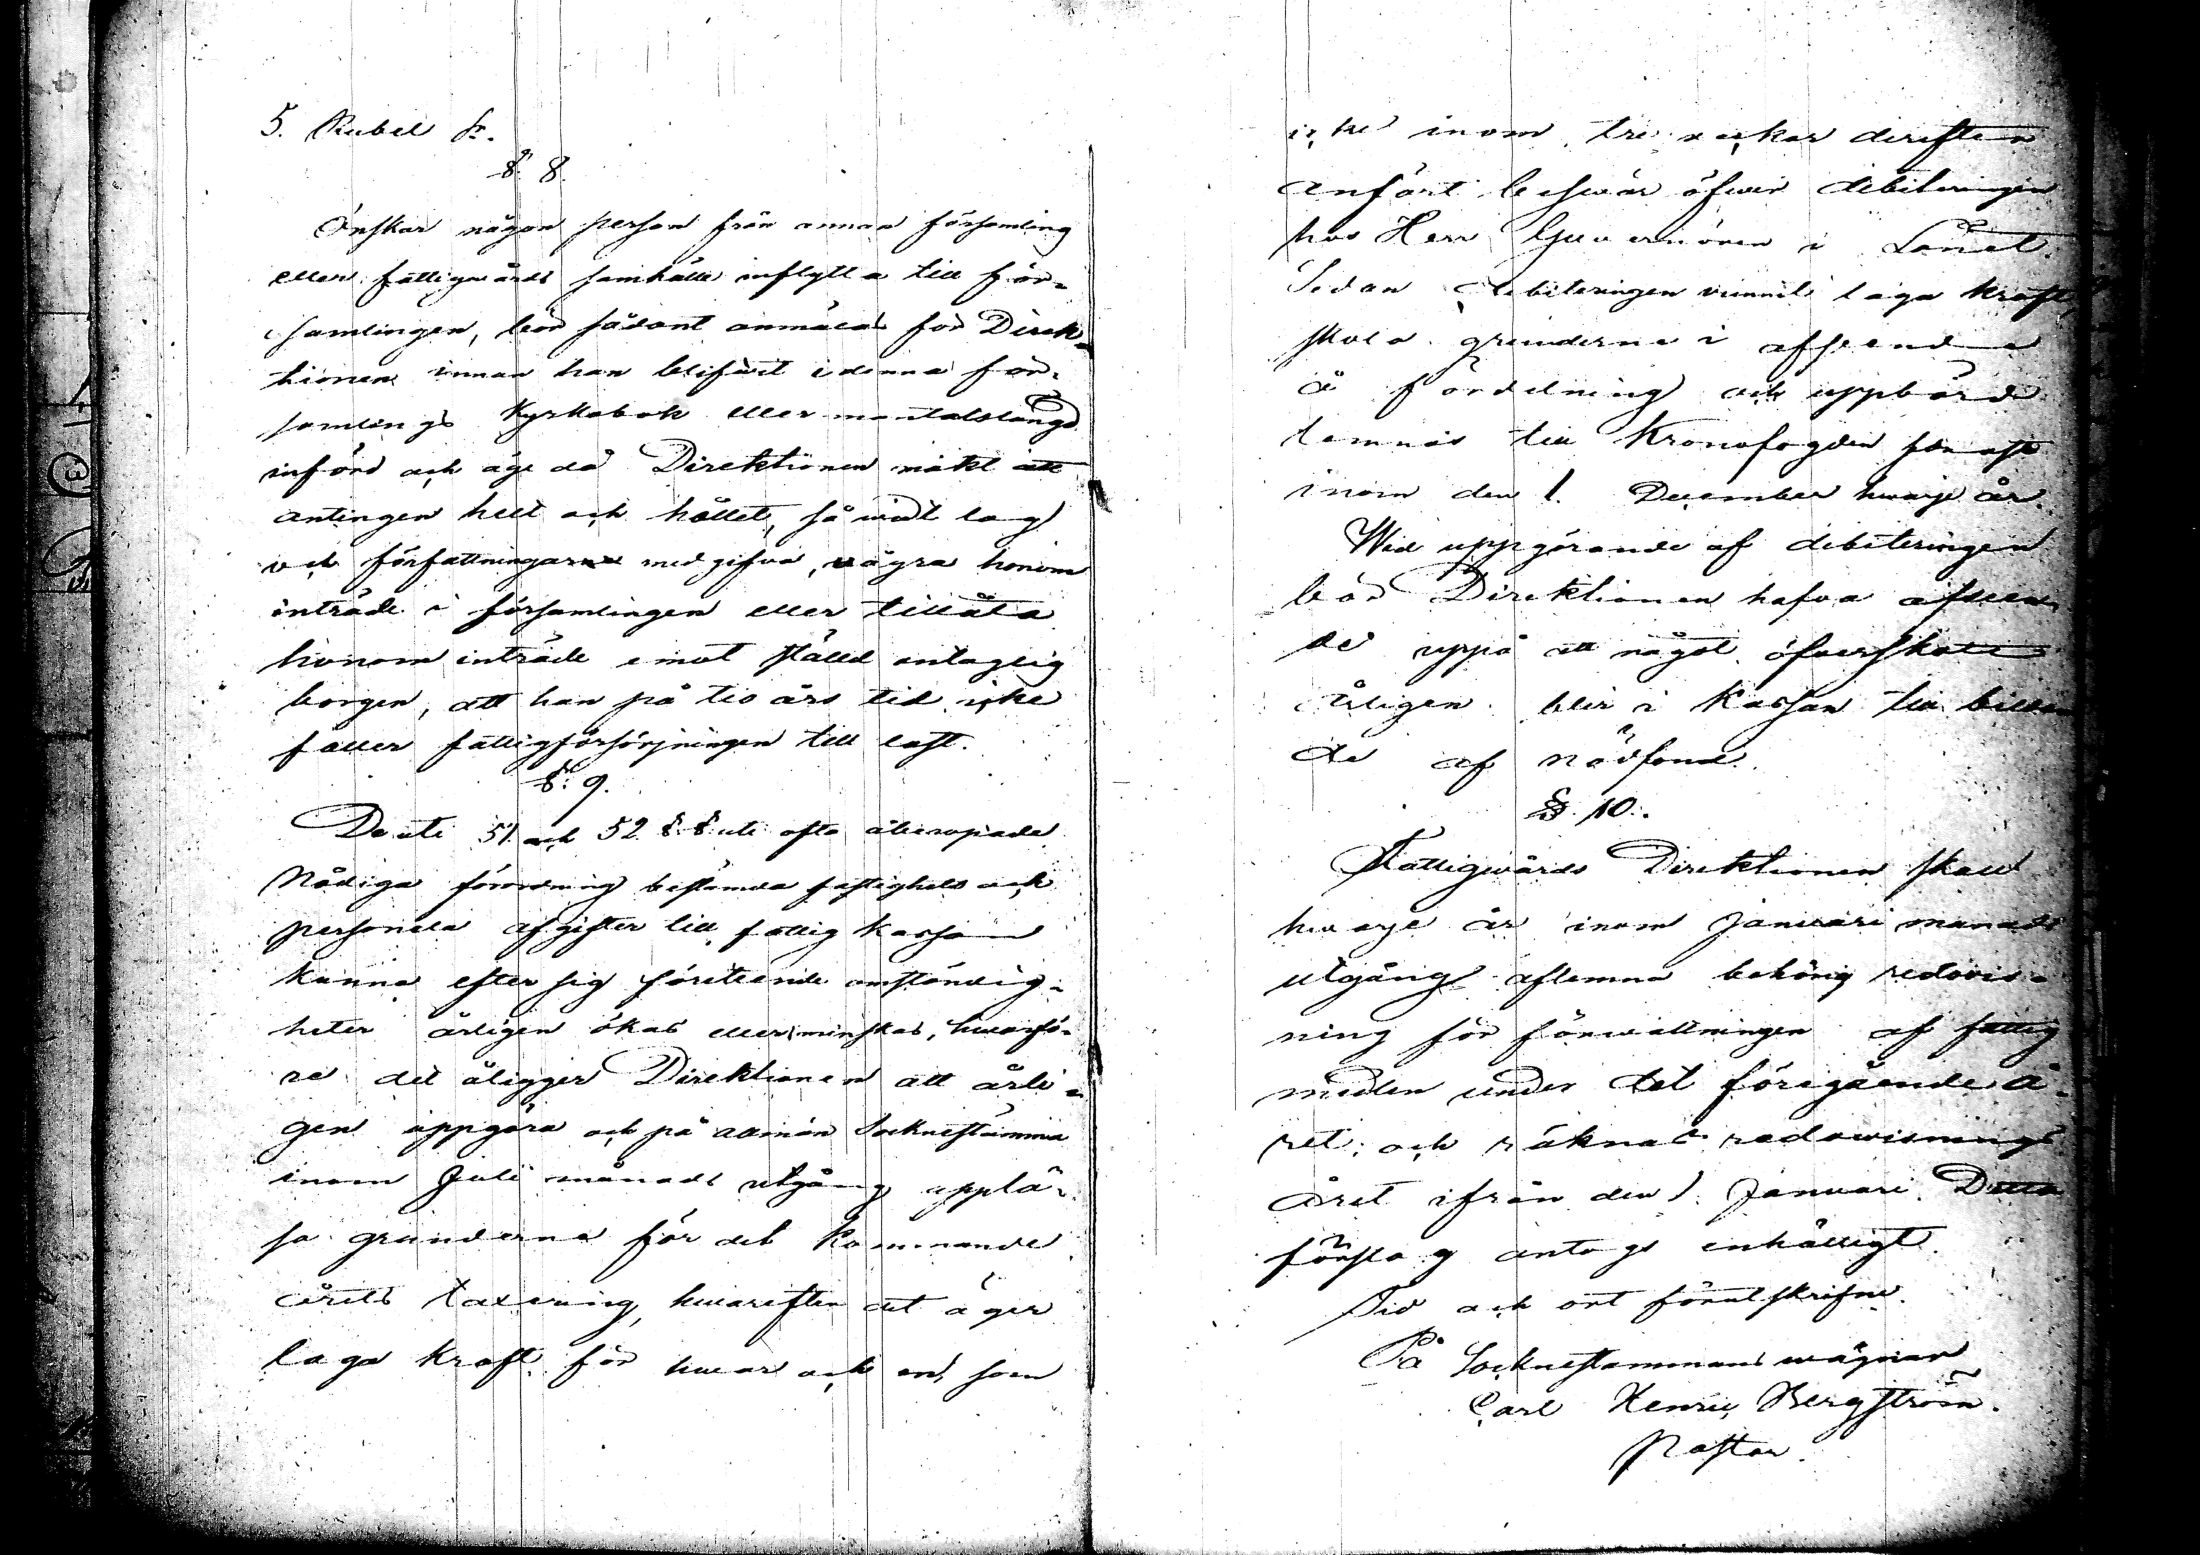 5. Rubel Sr.
§. 8.
Önskar någon person från annan församling
eller fattigwårds samhälle inflytta till för-
samlingen, bör sådant anmälas for Direk-
tionen innan han blifwit i denna för-
samlings Kyrkobok eller mantalslängd
införd och äge då Direktionen mákt att
antingen helt och hållet, så widt lag
och författningarne medgifva, wägra honom
inträde i församlingen eller tillåta
honom inträde emot ställd antaglig
borgen, att han på tio års tid icke
faller fattigförsörjningen till last.
§. 9.
De uti 51 och 52 §.§. uti ofta åberopade
Nådiga förordning bestämda fastighets och
personela afgifter till fattig kassan
kunna efter sig företeende omständig-
heter årligen ökas eller minskas, hwarfö-
re det åligger Direktionen att årli-
gen uppgöra och på allmän Socknestämma
inom Juli månads utgång upplä-
sa grunderna för det kommande
årets taxering, hwarefter det äger
laga kraft för hwar och en, som
icke inom tre weckor derefter
anfört beswär öfwer debiteringen
hos Herr Guvernören i Länet.
Sedan debiteringen vunnit laga kraft,
skola grunderna i afseende
å fördelning och uppbörd
lemnas till Kronofogden för oft
inom den 1. December hwarje år.
Wid uppgörande af debiteringen
bör Direktionen hafva afseen-
de uppå att något öfverskott
årligen blir i Kassan till bildan
de af nödfond.
§. 10.
Fattigwårds Direktionen skall
hwarje år inom Januari månads
utgång aflemna behörig redovis-
ning för förwaltningen af fattig
medlen under det föregående å-
ret; och räknas redowisnings
året ifrån den 1. Januari. Detta
förslag antogs enhälligt.
Tid och ort förutskrifne.
På Socknestämmans wägnar
Carl Henric Bergström.
Pastor.